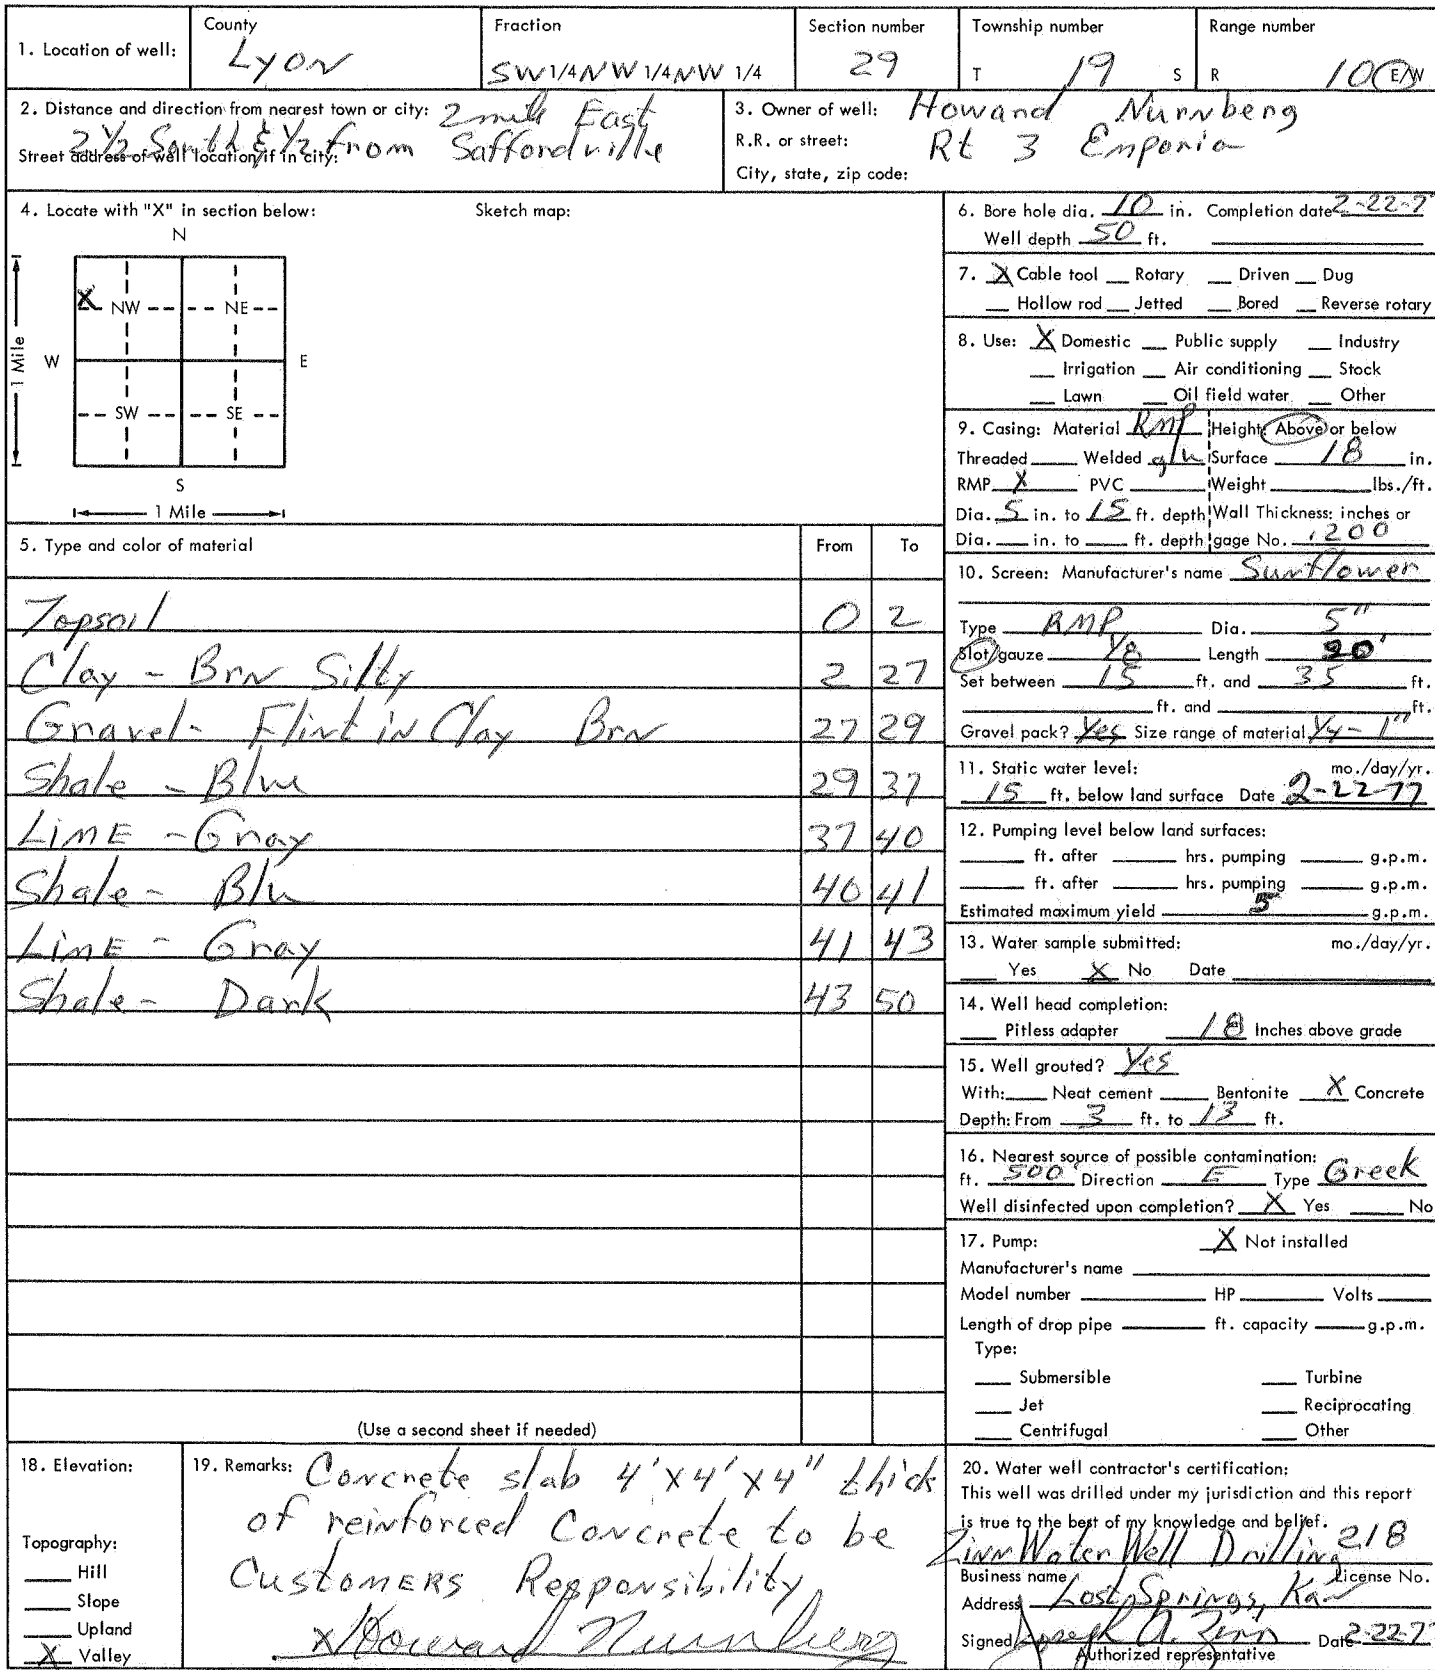 County Fraction Section number Township number Range number
1. Location of well: Lyon SW 1/4 NW 1/4 NW 1/4 29 T 19 S R 10 E/W
2. Distance and direction from nearest town or city: 2 mile East
2 1/2 South & 1/2 from Saffordville
Street address of well location if in city:
3. Owner of well: Howard Nurnberg
R.R. or street: Rt 3 Emporia
City, state, zip code:
4. Locate with "X" in section below: Sketch map:
N
X NW NE
W E
1 Mile
SW SE
S
1 Mile
5. Type and color of material From To
Topsoil 0 2
Clay - Brn Silty 2 27
Gravel - Flint in Clay Brn 27 29
Shale - Blue 29 37
LIME - Gray 37 40
Shale - Blu 40 41
LIME - Gray 41 43
Shale - Dark 43 50
(Use a second sheet if needed)
6. Bore hole dia. 10 in. Completion date 2-22-7
Well depth 50 ft.
7. X Cable tool __ Rotary __ Driven __ Dug
__ Hollow rod __ Jetted __ Bored __ Reverse rotary
8. Use: X Domestic __ Public supply __ Industry
__ Irrigation __ Air conditioning __ Stock
__ Lawn __ Oil field water __ Other
9. Casing: Material RMP Height: Above or below
Threaded ___ Welded glu Surface 18 in.
RMP X PVC ___ Weight ___ lbs./ft.
Dia. 5 in. to 15 ft. depth Wall Thickness: inches or
Dia. ___ in. to ___ ft. depth gage No. .200
10. Screen: Manufacturer's name Sunflower
Type RMP Dia. 5"
Slot/gauze 1/8 Length 20'
Set between 15 ft. and 35 ft.
___ ft. and ___ ft.
Gravel pack? Yes Size range of material 1/4 - 1"
11. Static water level: mo./day/yr.
15 ft. below land surface Date 2-22-77
12. Pumping level below land surfaces:
___ ft. after ___ hrs. pumping ___ g.p.m.
___ ft. after ___ hrs. pumping ___ g.p.m.
Estimated maximum yield 5 g.p.m.
13. Water sample submitted: mo./day/yr.
__ Yes X No Date ___
14. Well head completion:
__ Pitless adapter 18 Inches above grade
15. Well grouted? Yes
With: ___ Neat cement ___ Bentonite X Concrete
Depth: From 3 ft. to 13 ft.
16. Nearest source of possible contamination:
ft. 500' Direction E Type Creek
Well disinfected upon completion? X Yes ___ No
17. Pump: X Not installed
Manufacturer's name ___
Model number ___ HP ___ Volts ___
Length of drop pipe ___ ft. capacity ___ g.p.m.
Type:
__ Submersible __ Turbine
__ Jet __ Reciprocating
__ Centrifugal __ Other
18. Elevation:
Topography:
__ Hill
__ Slope
__ Upland
X Valley
19. Remarks: Concrete slab 4'x4'x4" thick
of reinforced Concrete to be
Customers Responsibility
x Howard Nurnberg
20. Water well contractor's certification:
This well was drilled under my jurisdiction and this report
is true to the best of my knowledge and belief.
Zinn Water Well Drilling 218
Business name License No.
Address Lost Springs, Kan
Signed Joseph A. Zinn Date 2-22-7
Authorized representative